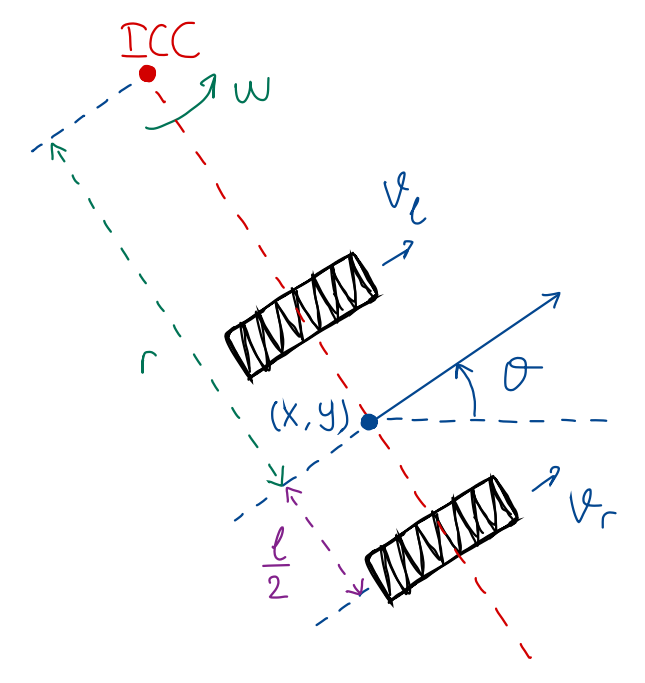 ICC
w
v_l
r
θ
(x,y)
v_r
l/2